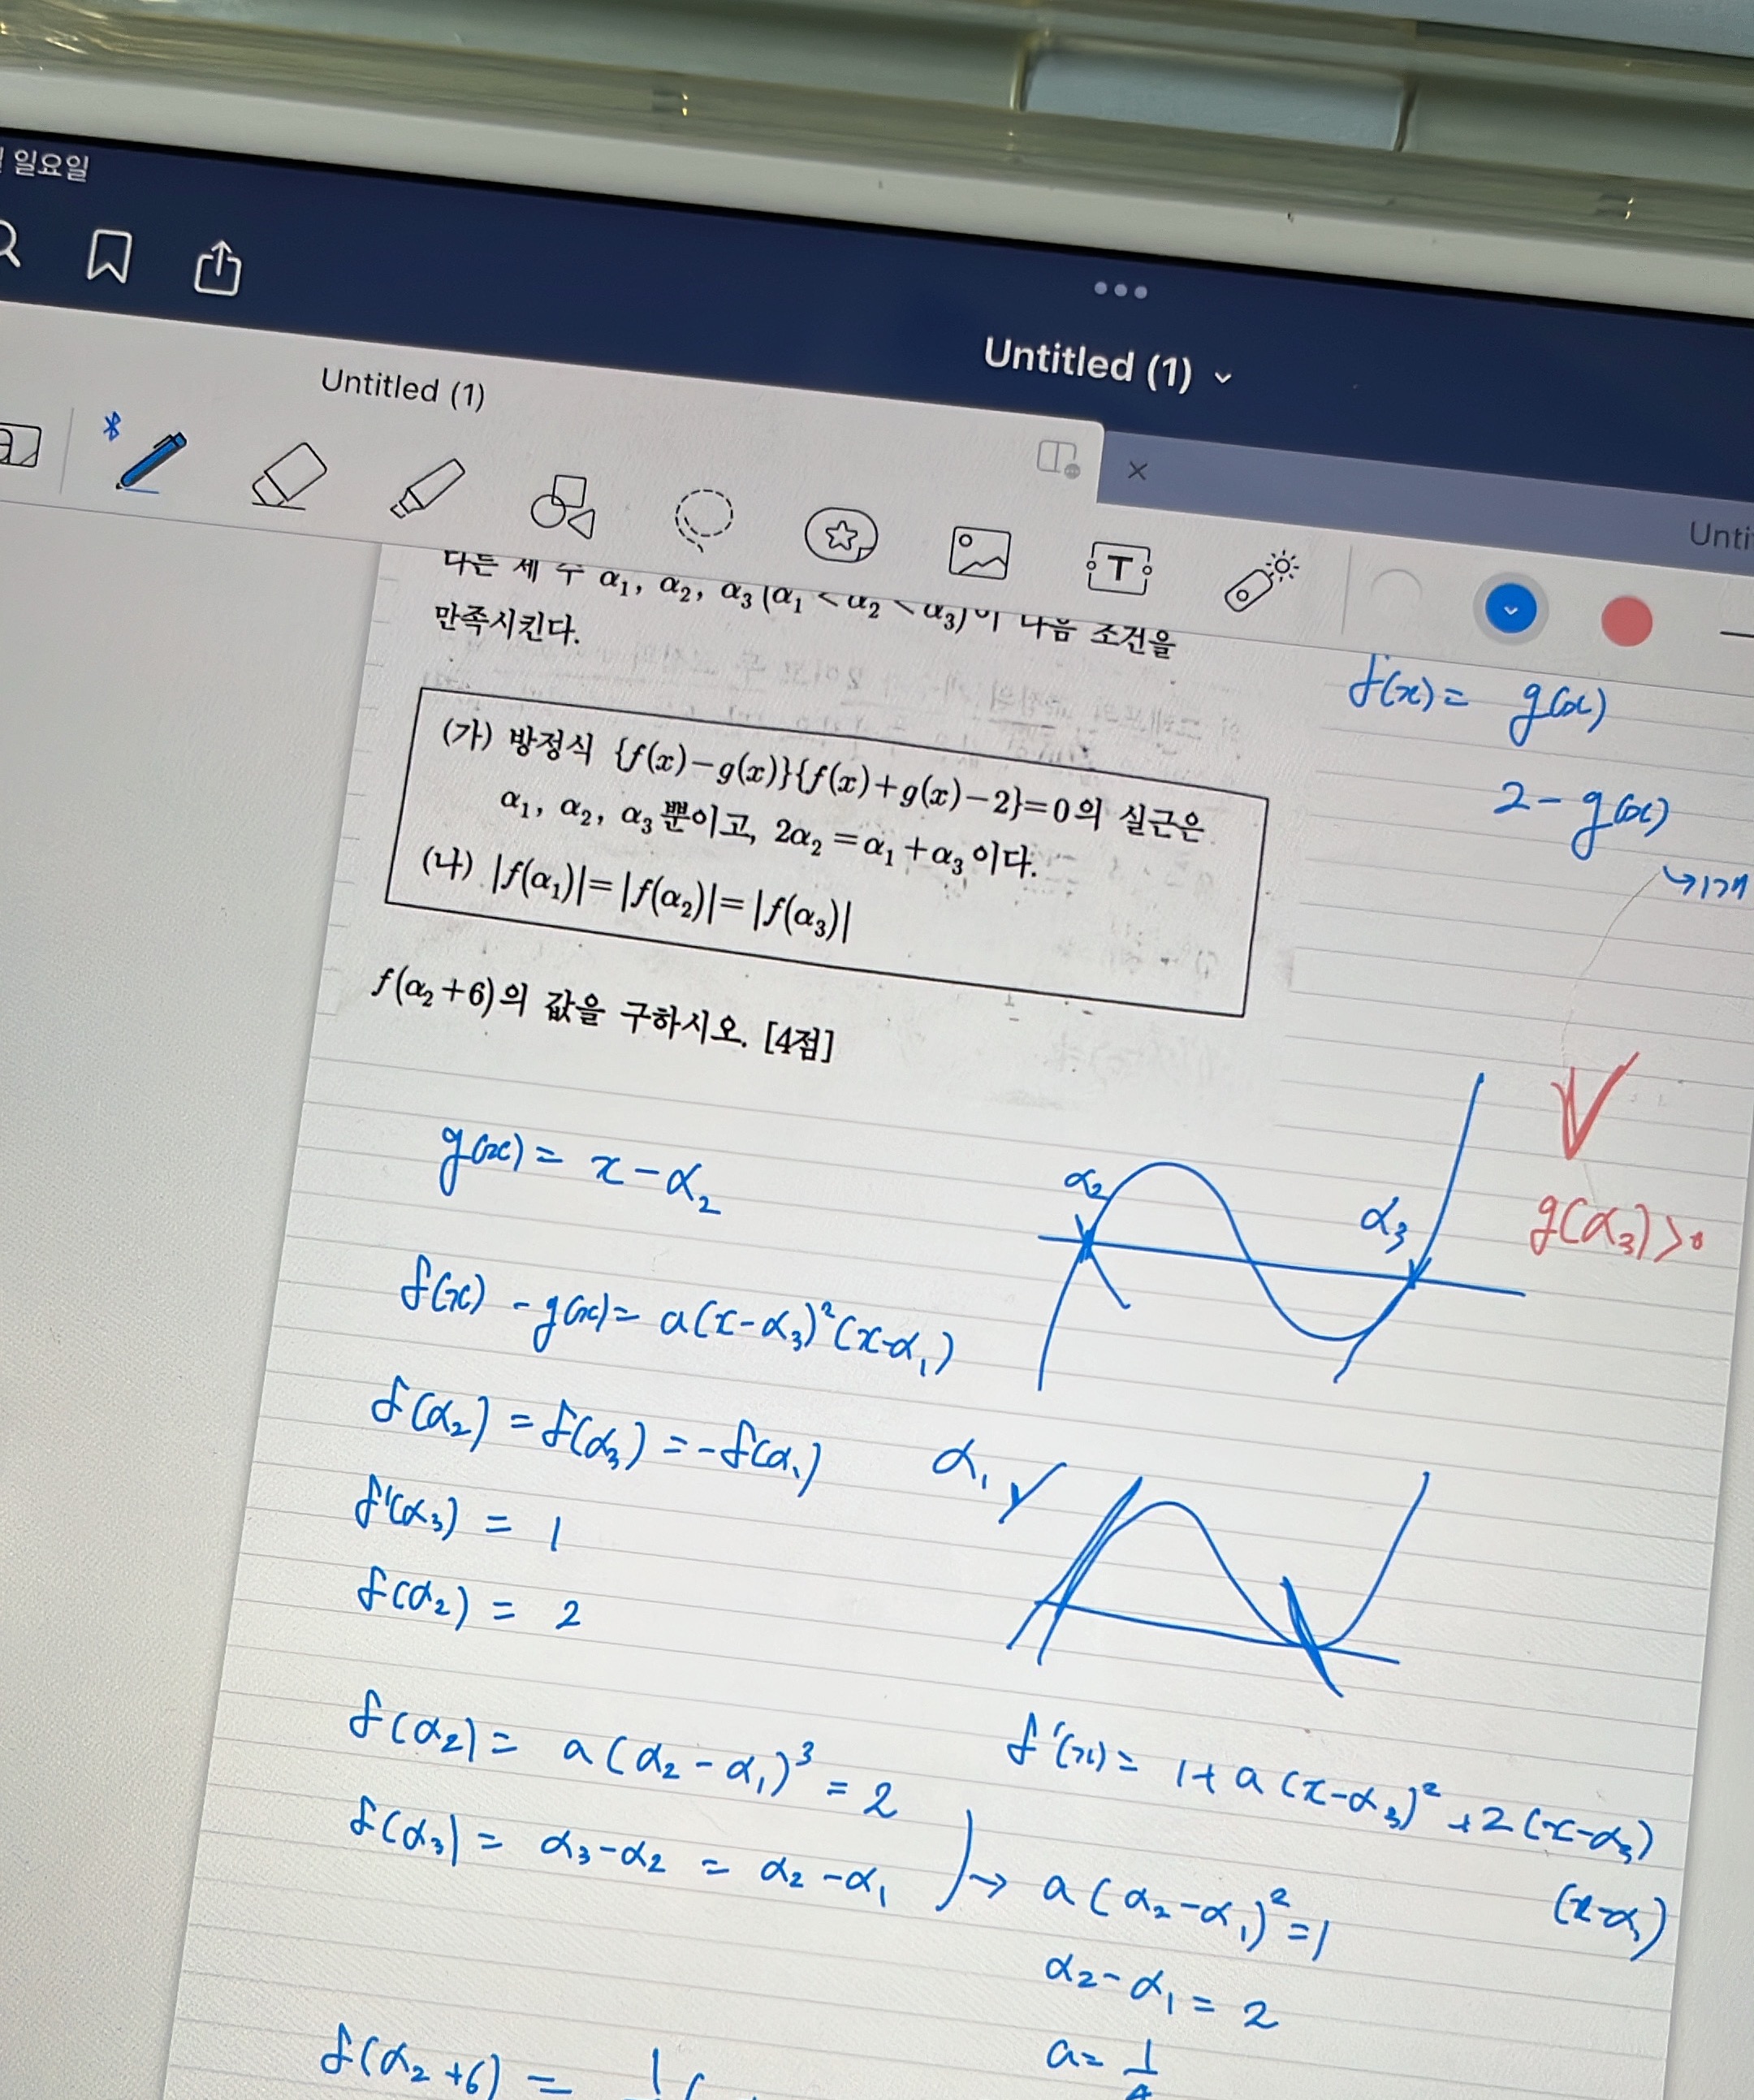 일요일
Untitled (1)
Untitled (1)
Unti
다른 세 수 α₁, α₂, α₃ (α₁ < α₂ < α₃)이 다음 조건을
만족시킨다.
(가) 방정식 {f(x)-g(x)}{f(x)+g(x)-2}=0의 실근은
α₁, α₂, α₃뿐이고, 2α₂=α₁+α₃이다.
(나) |f(α₁)|=|f(α₂)|=|f(α₃)|
f(α₂+6)의 값을 구하시오. [4점]
f(x)= g(x)
2-g(x)
↳1개
g(x)= x-α₂
α₂
α₃
g(α₃)>0
f(x) -g(x)= a(x-α₃)²(x-α₁)
f(α₂)=f(α₃)=-f(α₁)
α₁
f'(α₃) = 1
f(α₂) = 2
f(α₂)= a(α₂-α₁)³=2
f'(x)= 1+a(x-α₃)²+2(x-α₃)
(x-α₁)
f(α₃)= α₃-α₂ = α₂-α₁
→ a(α₂-α₁)²=1
α₂-α₁=2
a= 1/4
f(α₂+6) =